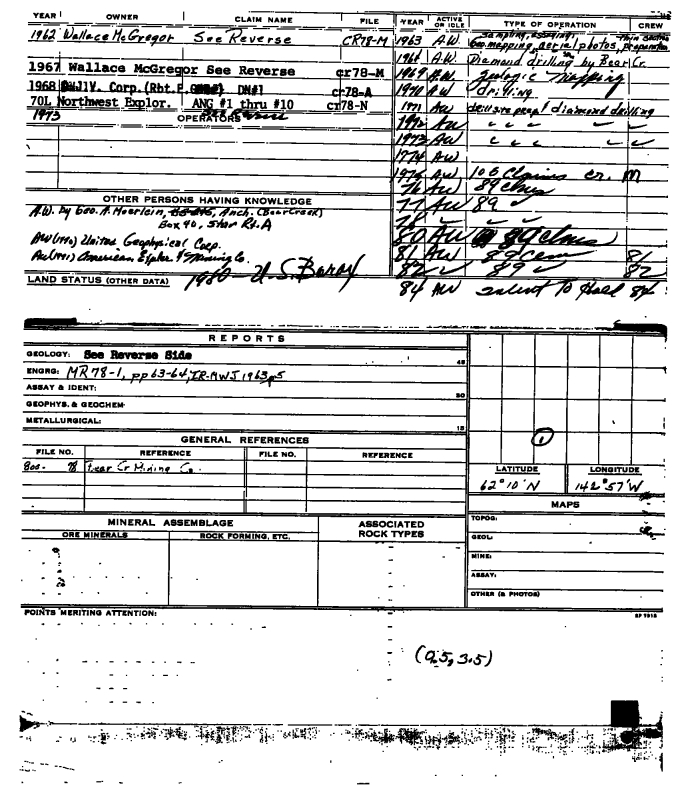 YEAR OWNER CLAIM NAME FILE
1962 Wallace McGregor See Reverse CR78-M
1967 Wallace McGregor See Reverse cr78-M
1968 Corp. (Rbt.P. DN#1 cr78-A
70L Northwest Explor. ANG #1 thru #10 cr78-N
1973
OPERATORS
OTHER PERSONS HAVING KNOWLEDGE
A.W. by Geo. A. Moerlein, Anch. (Bear Creek)
Box 40, Star Rt. A
AW(1970) United Geophysical Corp.
American Explor. & Mining Co.
LAND STATUS (OTHER DATA) 1980 - U.S. Borax
YEAR ACTIVE OR IDLE TYPE OF OPERATION CREW
sampling, assaying, thin sections
1963 A.W. Geo mapping, aerial photos, preparation
A.W. Diamond drilling by Bear Cr.
1969 A.W. geologic mapping
1970 A.W. drilling
1971 AW drill site prep/diamond drilling
1972 AW " " " "
1973 AW " " " "
1974 AW
1975 AW 106 claims cr. M
76 AW 89 clms
77 AW 89 ✓
78 ✓ ✓
80 AW 89 clms
81 AW 89 clms 81
82 ✓ 89 ✓ 82
84 AW intent to Hold 84
REPORTS
GEOLOGY: See Reverse Side
45
ENGRG: MR 78-1, pp 63-64, IR-MWJ 1963 p5
ASSAY & IDENT:
30
GEOPHYS. & GEOCHEM:
METALLURGICAL:
15
GENERAL REFERENCES
FILE NO. REFERENCE FILE NO. REFERENCE
800- 78 Bear Cr Mining Co.
MINERAL ASSEMBLAGE ASSOCIATED ROCK TYPES
ORE MINERALS ROCK FORMING, ETC.
1
LATITUDE LONGITUDE
62°10'N 142°57'W
MAPS
TOPOG:
GEOL:
MINE:
ASSAY:
OTHER (& PHOTOS)
POINTS MERITING ATTENTION:
SP 7915
(0.5, 3.5)